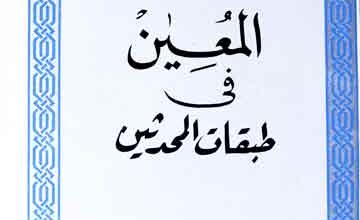 المعين
فى
طبقات المحدثين